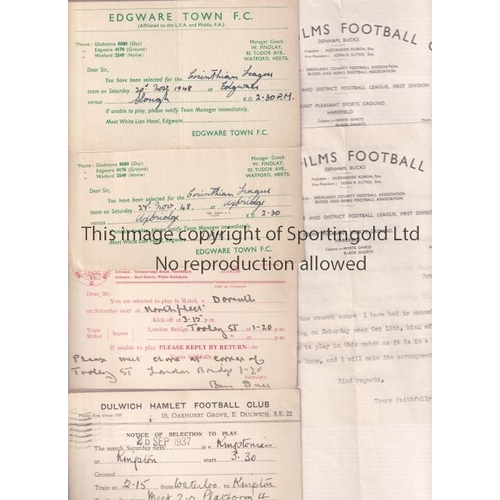 EDGWARE TOWN F.C.
(Affiliated to the L.F.A. and Middx. F.A.)
Phone: Gladstone 8080 (Day)
Edgware 4170 (Ground)
Watford 2549 (Home)
Manager Coach
W. FINDLAY,
92 TUDOR AVE.,
WATFORD, HERTS.
Dear Sir,
You have been selected for the Corinthian League
team on Saturday 20th Nov. 1948 at Edgware
versus Slough K.O. 2-30 P.M.
If unable to play, please notify Team Manager immediately.
Meet White Lion Hotel, Edgware
EDGWARE TOWN F.C.
EDGWARE TOWN F.C.
(Affiliated to the L.F.A. and Middx. F.A.)
Phone: Gladstone 8080 (Day)
Edgware 4170 (Ground)
Watford 2549 (Home)
Manager Coach
W. FINDLAY,
92 TUDOR AVE.,
WATFORD, HERTS.
Dear Sir,
You have been selected for the Corinthian League
team on Saturday 27. Nov. 48. at Uxbridge
versus Uxbridge K.O. 2-30
If unable to play, please notify Team Manager immediately.
Meet White Lion Hotel, Edgware
EDGWARE TOWN F.C.
Dear Sir,
You are selected to play in Match v
on Saturday next at Northfleet
Kick-off at 3-15 p.m.
Train leaves London Bridge Tooley St 1-20 p.m.
If unable to Play PLEASE REPLY BY RETURN to
Yours faithfully,
Please meet at corner of
Tooley St London Bridge 1-20
Secretary.
DULWICH HAMLET FOOTBALL CLUB
18, OAKHURST GROVE, E. DULWICH, S.E. 22.
NOTICE OF SELECTION TO PLAY
25 SEP 1937
The match Saturday next is v Kingstonian
at Kingston start 3.30
Ground
Train 2-15 from Waterloo to Kingston
Meet 2.0 Platform 4
ILMS FOOTBALL
DENHAM, BUCKS
President - ALEXANDER KORDA, Esq.
Vice-President
MIDDLESEX COUNTY FOOTBALL ASSOCIATION
BUCKS AND BERKS FOOTBALL ASSOCIATION
AND DISTRICT FOOTBALL LEAGUE, FIRST DIVISION
MOUNT PLEASANT SPORTS GROUND,
HAREFIELD
WHITE SHIRTS
BLACK SHORTS
ILMS FOOTBALL
DENHAM, BUCKS
President - ALEXANDER KORDA, Esq.
Vice-President
MIDDLESEX COUNTY FOOTBALL ASSOCIATION
BUCKS AND BERKS FOOTBALL ASSOCIATION
AND DISTRICT FOOTBALL LEAGUE, FIRST DIVISION
WHITE SHIRTS
BLACK SHORTS
I have had to
on Saturday week Oct 13th,
to play in this match as it is a
know, and I will make the
Kind regards,
Yours faithfully
This image copyright of Sportingold Ltd
No reproduction allowed